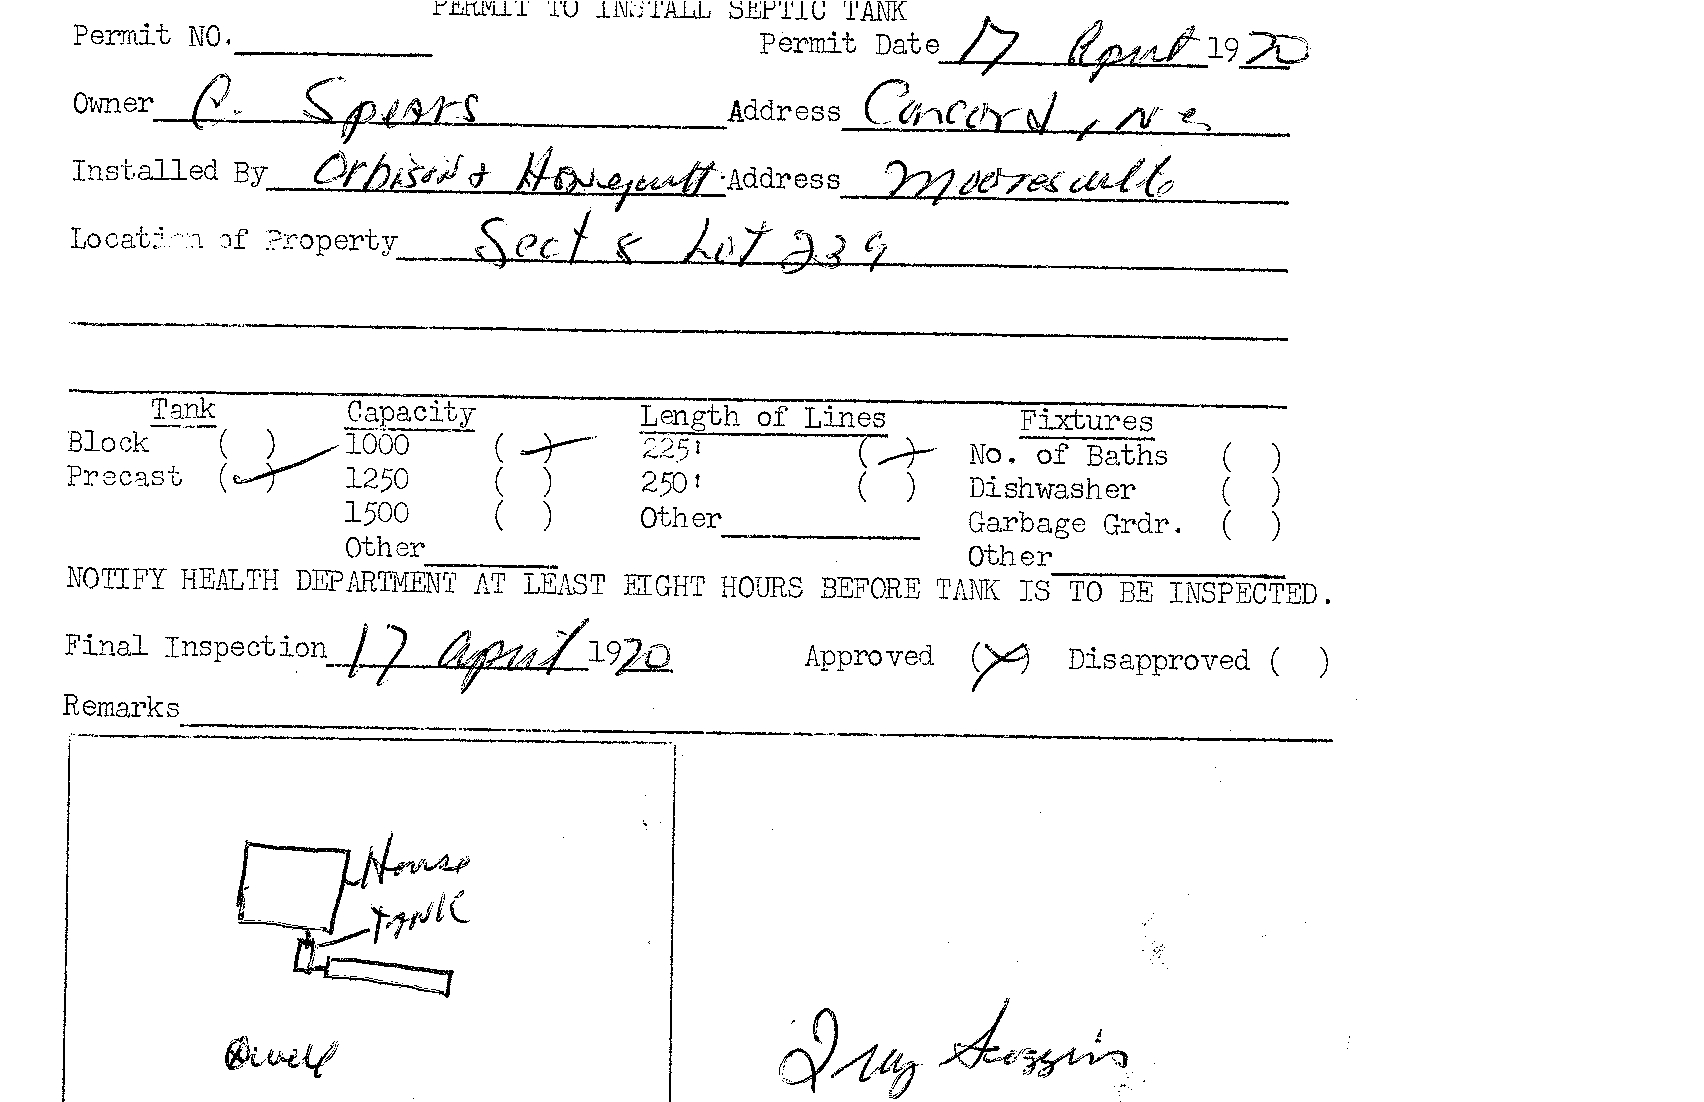 PERMIT TO INSTALL SEPTIC TANK
Permit NO. Permit Date 17 April 1970
Owner C. Spears Address Concord, N C
Installed By Orbison & Honeycutt Address Mooresville
Location of Property Sect 8 Lot 239
Tank Capacity Length of Lines Fixtures
Block ( ) 1000 (✓) 225' (✓) No. of Baths ( )
Precast (✓) 1250 ( ) 250' ( ) Dishwasher ( )
1500 ( ) Other Garbage Grdr. ( )
Other Other
NOTIFY HEALTH DEPARTMENT AT LEAST EIGHT HOURS BEFORE TANK IS TO BE INSPECTED.
Final Inspection 17 April 1970 Approved (X) Disapproved ( )
Remarks
House
TANK
well